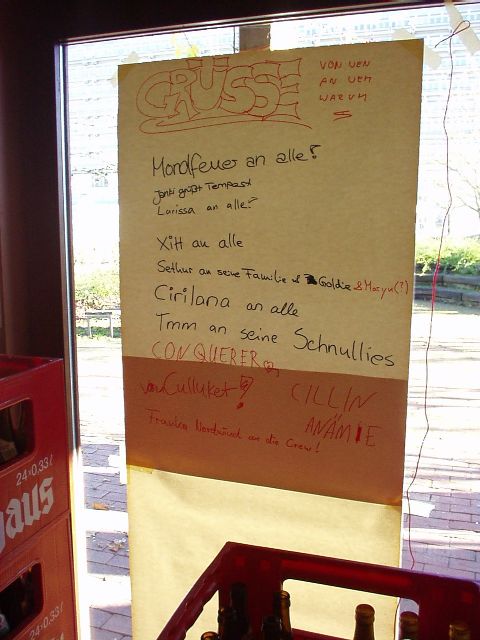 GRÜSSE
VON WEN
AN WEM
WARUM
Mordfeuer an alle!
Janti grüßt Tempest
Larissa an alle!
XiTT an alle
Sethur an seine Familie & Goldie & Maryu(?)
Cirilana an alle
Tmm an seine Schnullies
CONQUERER
von Culluket!
CILLIN
ANÄMIE
Nordwind an die Crew!
24x0,33l
haus
24x0,33l